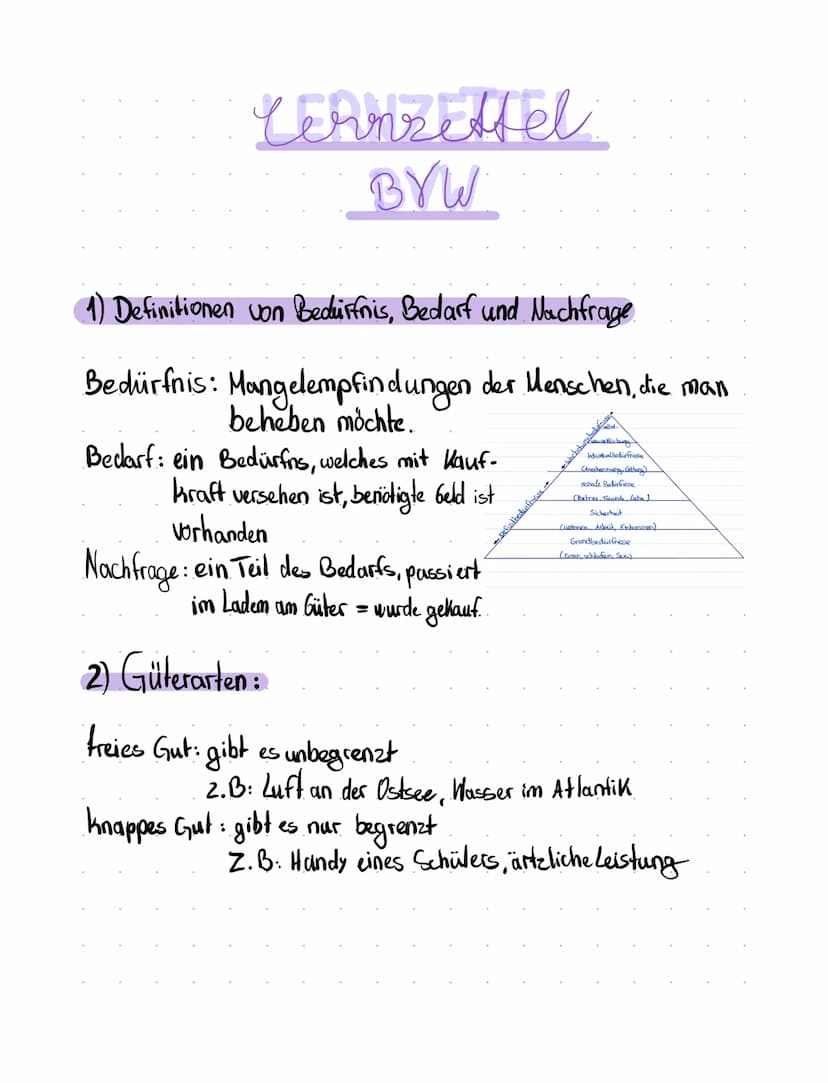 Lernzettel
BVW
1) Definitionen von Bedürfnis, Bedarf und Nachfrage
Bedürfnis: Mangelempfindungen der Menschen, die man
beheben möchte.
Bedarf: ein Bedürfns, welches mit Kauf-
kraft versehen ist, benötigte Geld ist
vorhanden
Nachfrage: ein Teil des Bedarfs, passiert
im Laden am Güter = wurde gekauf.
Individualbedürfnisse
soziale Bedürfnisse
Sicherheit
Grundbedürfnisse
2) Güterarten:
freies Gut: gibt es unbegrenzt
z.B: Luft an der Ostsee, Wasser im Atlantik
knappes Gut: gibt es nur begrenzt
Z.B: Handy eines Schülers, ärtzliche Leistung